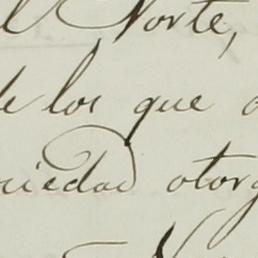 l Norte,
de los que
ciedad otorg